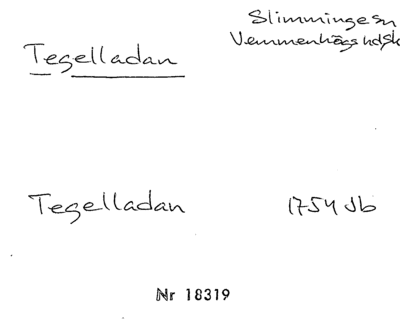 Slimminge sn
Vemmenhögs hd, Sk
Tegelladan
Tegelladan 1754 Jb
Nr 18319